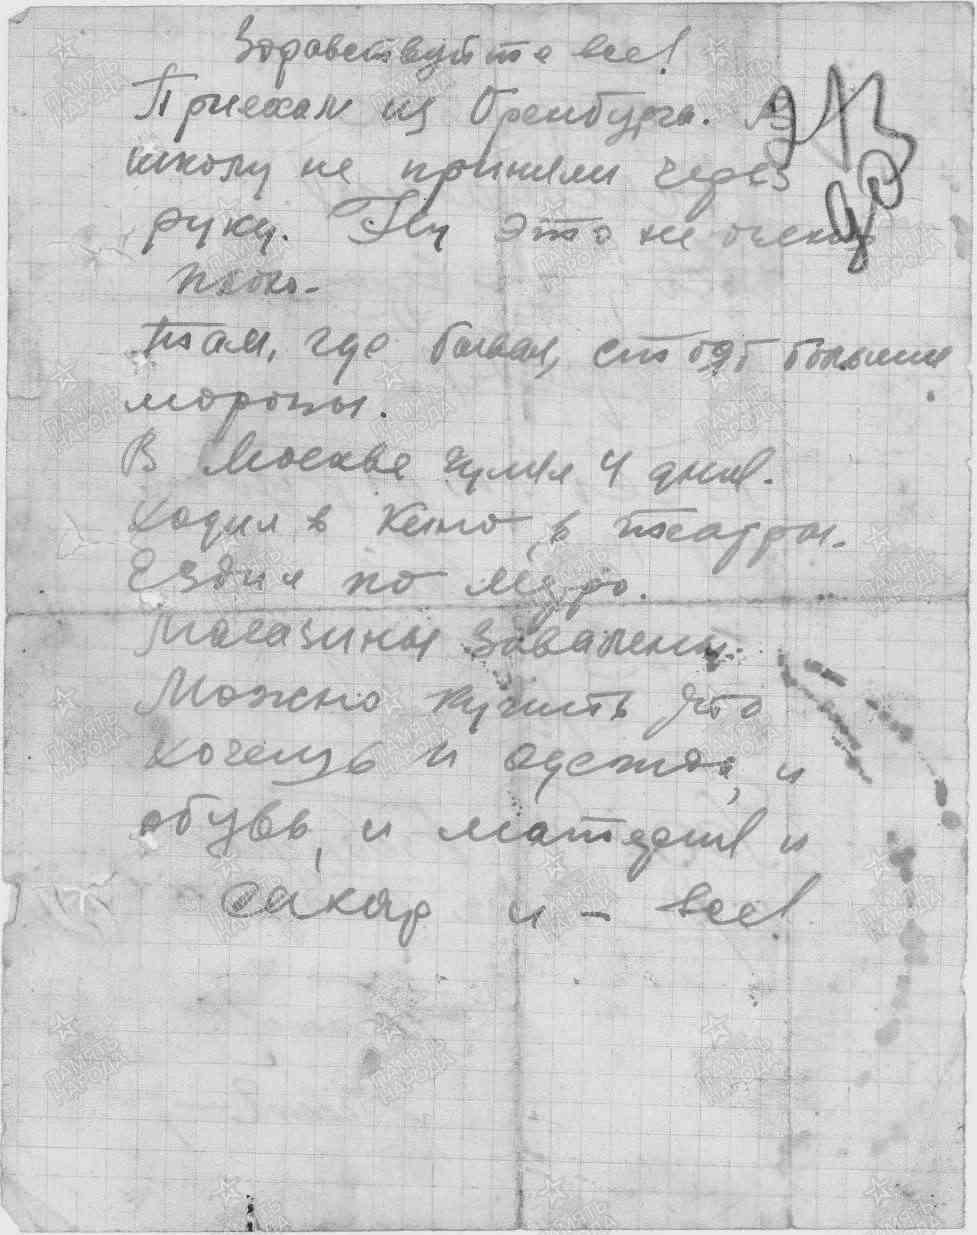 Здравствуйте все!
Приехал из Оренбурга. В
школу не приняли через
руку. Ну это не очень
плохо.
Там, где бывал, стоят большие
морозы.
В Москве гулял 4 дня.
Ходил в кино, в театры.
Ездил по метро.
Магазины завалены.
Можно купить что
хочешь и одежда, и
обувь, и материя и
сахар и – все!